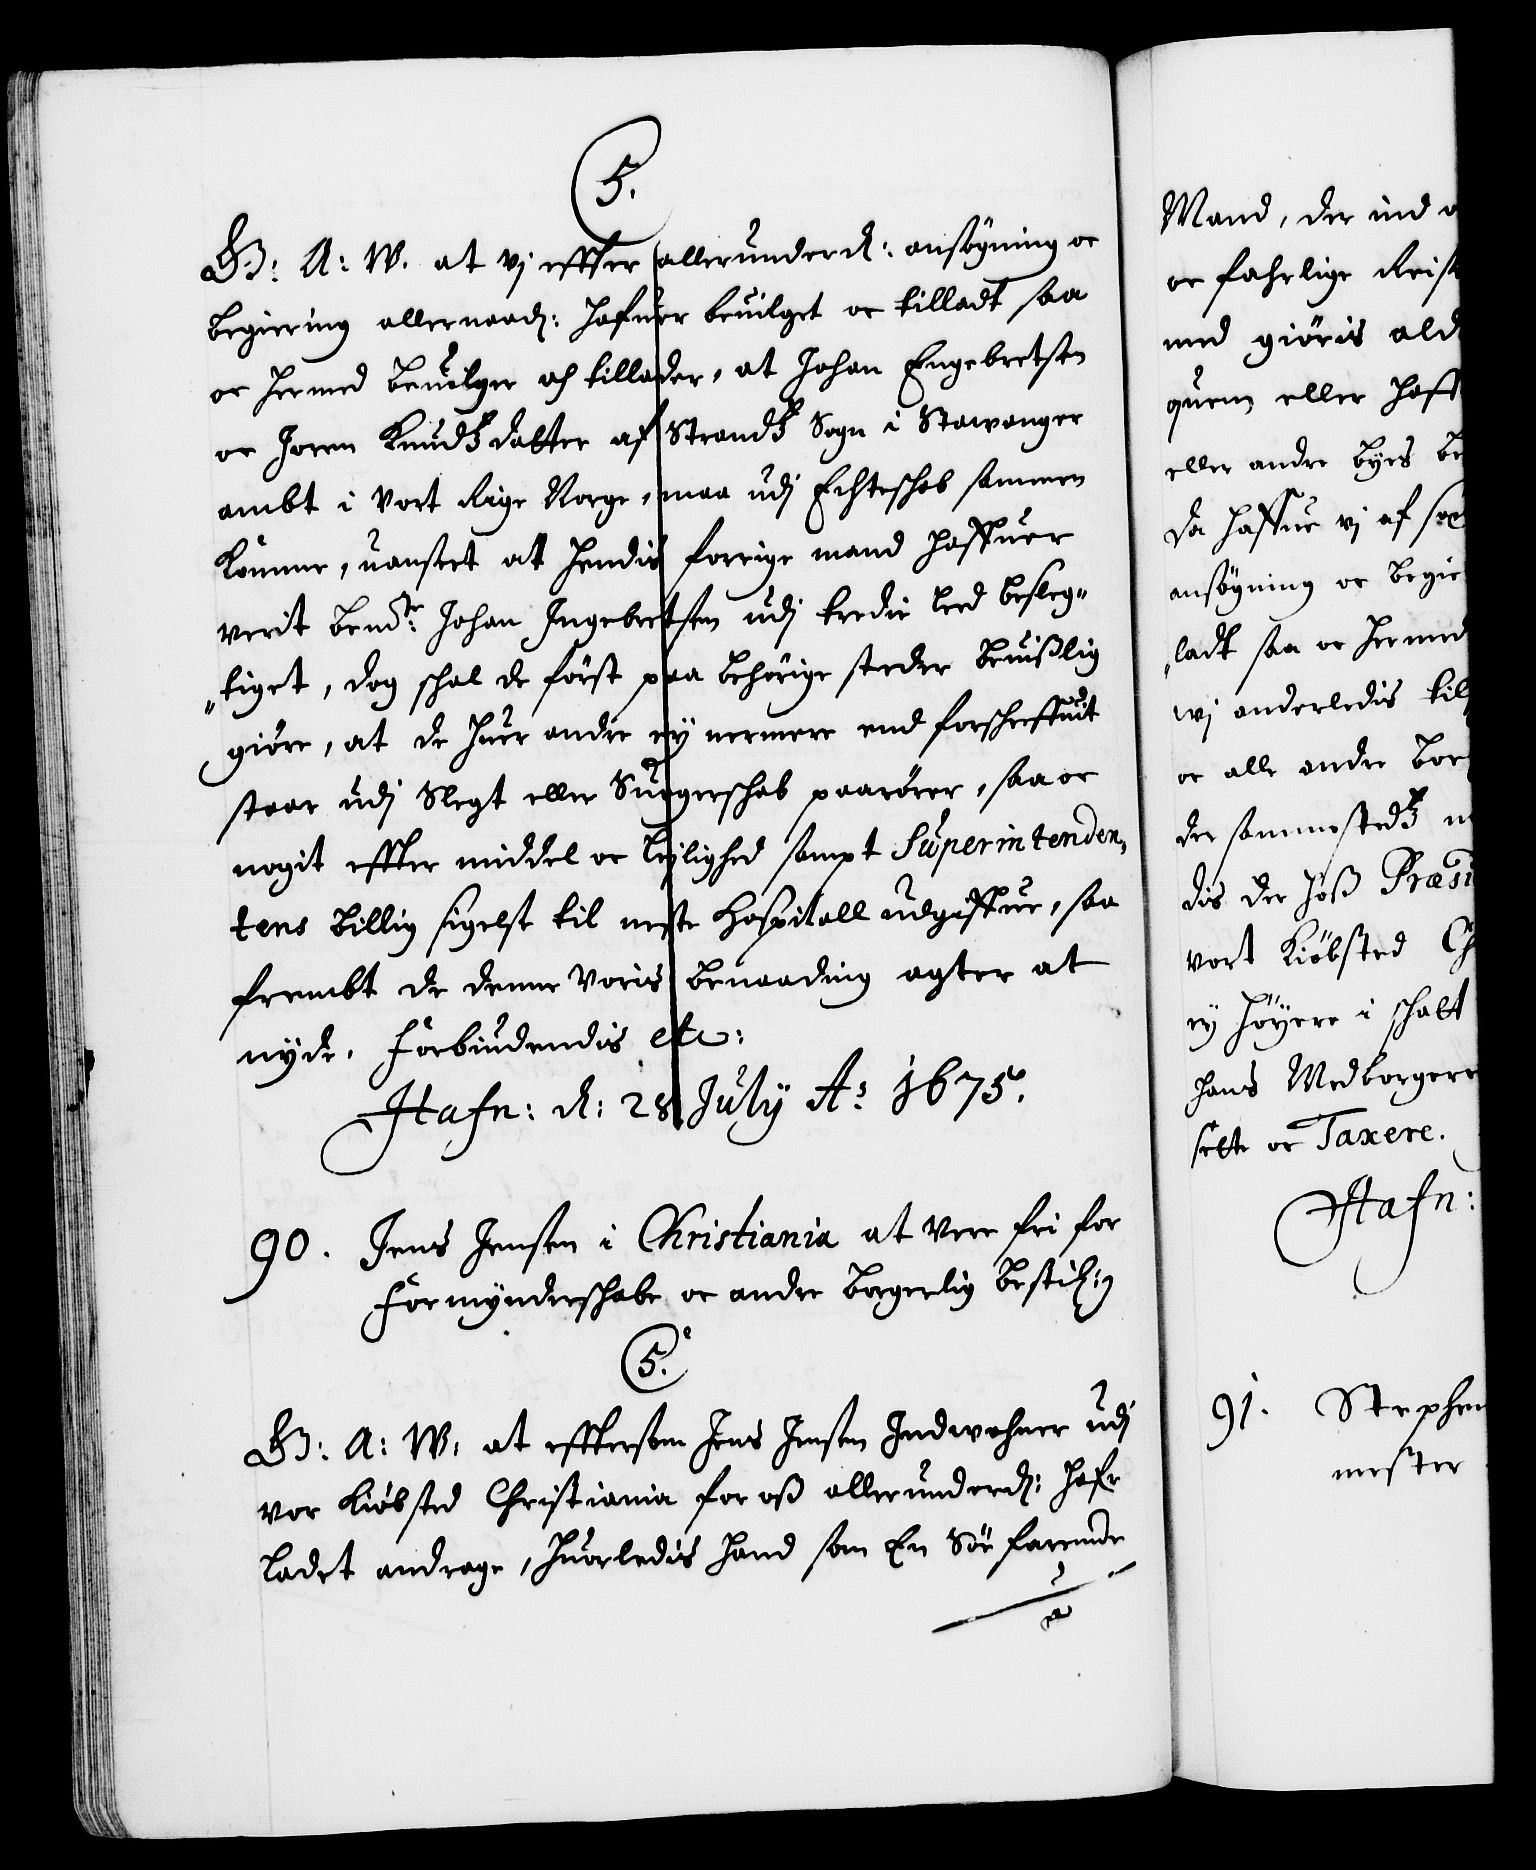 5.
G: A: W. at vj effter allerunderd: ansøgning oc
begiering allernaad: hafuer beuilget oc tilladt saa
oc hermed beuilger och tillader, at Johan Engebretsen
oc Joren Knudtz datter af Strandtz Sogn i Stawanger
ambt i Vort Rige Norge, maa udj Echteschab sammen
komme, uanseet att hendis forrige mand haffuer
verit bemte: Johan Ingebretsen udj tredie leed besleg„
„tiget, dog schal de først paa behørige steder beuißlig
giøre, at de huer andre ey nermere end forschreffuit
staar udj Slegt eller Suogerschab paarører, saa oc
nogit effter middel oc lejlighed sampt Superintenden,
tens billig sigelse til neste Hospitall udgiffue, saa
frembt de denne Voris benaading agter at
nyde. Forbiudendis etc:
Hafn: d: 28 July Ao: 1675.
90. Jens Jensen i Christiania at vere fri for
Formynderschabe oc andre borgerlig bestil:g
5.
G: A: W: at effttersom Jens Jensen Indwohner udj
vor Kiøbsted Christiania for oß allerunderd: hafr
ladet andrage, huorledis hand som En Søe farende
Mand, der ind
oc fahrlige Reis
med giøris ald
quem eller haff
eller andre byes be
da haffue vj af
ansøgning oc begie
„ladt saa oc hermed
wj anderledis til
oc alle andre bor
der sammestedtz
dis der hoß Præsi
vort Kiøbsted Ch
ey høyere i schatt
hans Medborgere
sette oc Taxere.
Hafn:
91. Stephen
mester